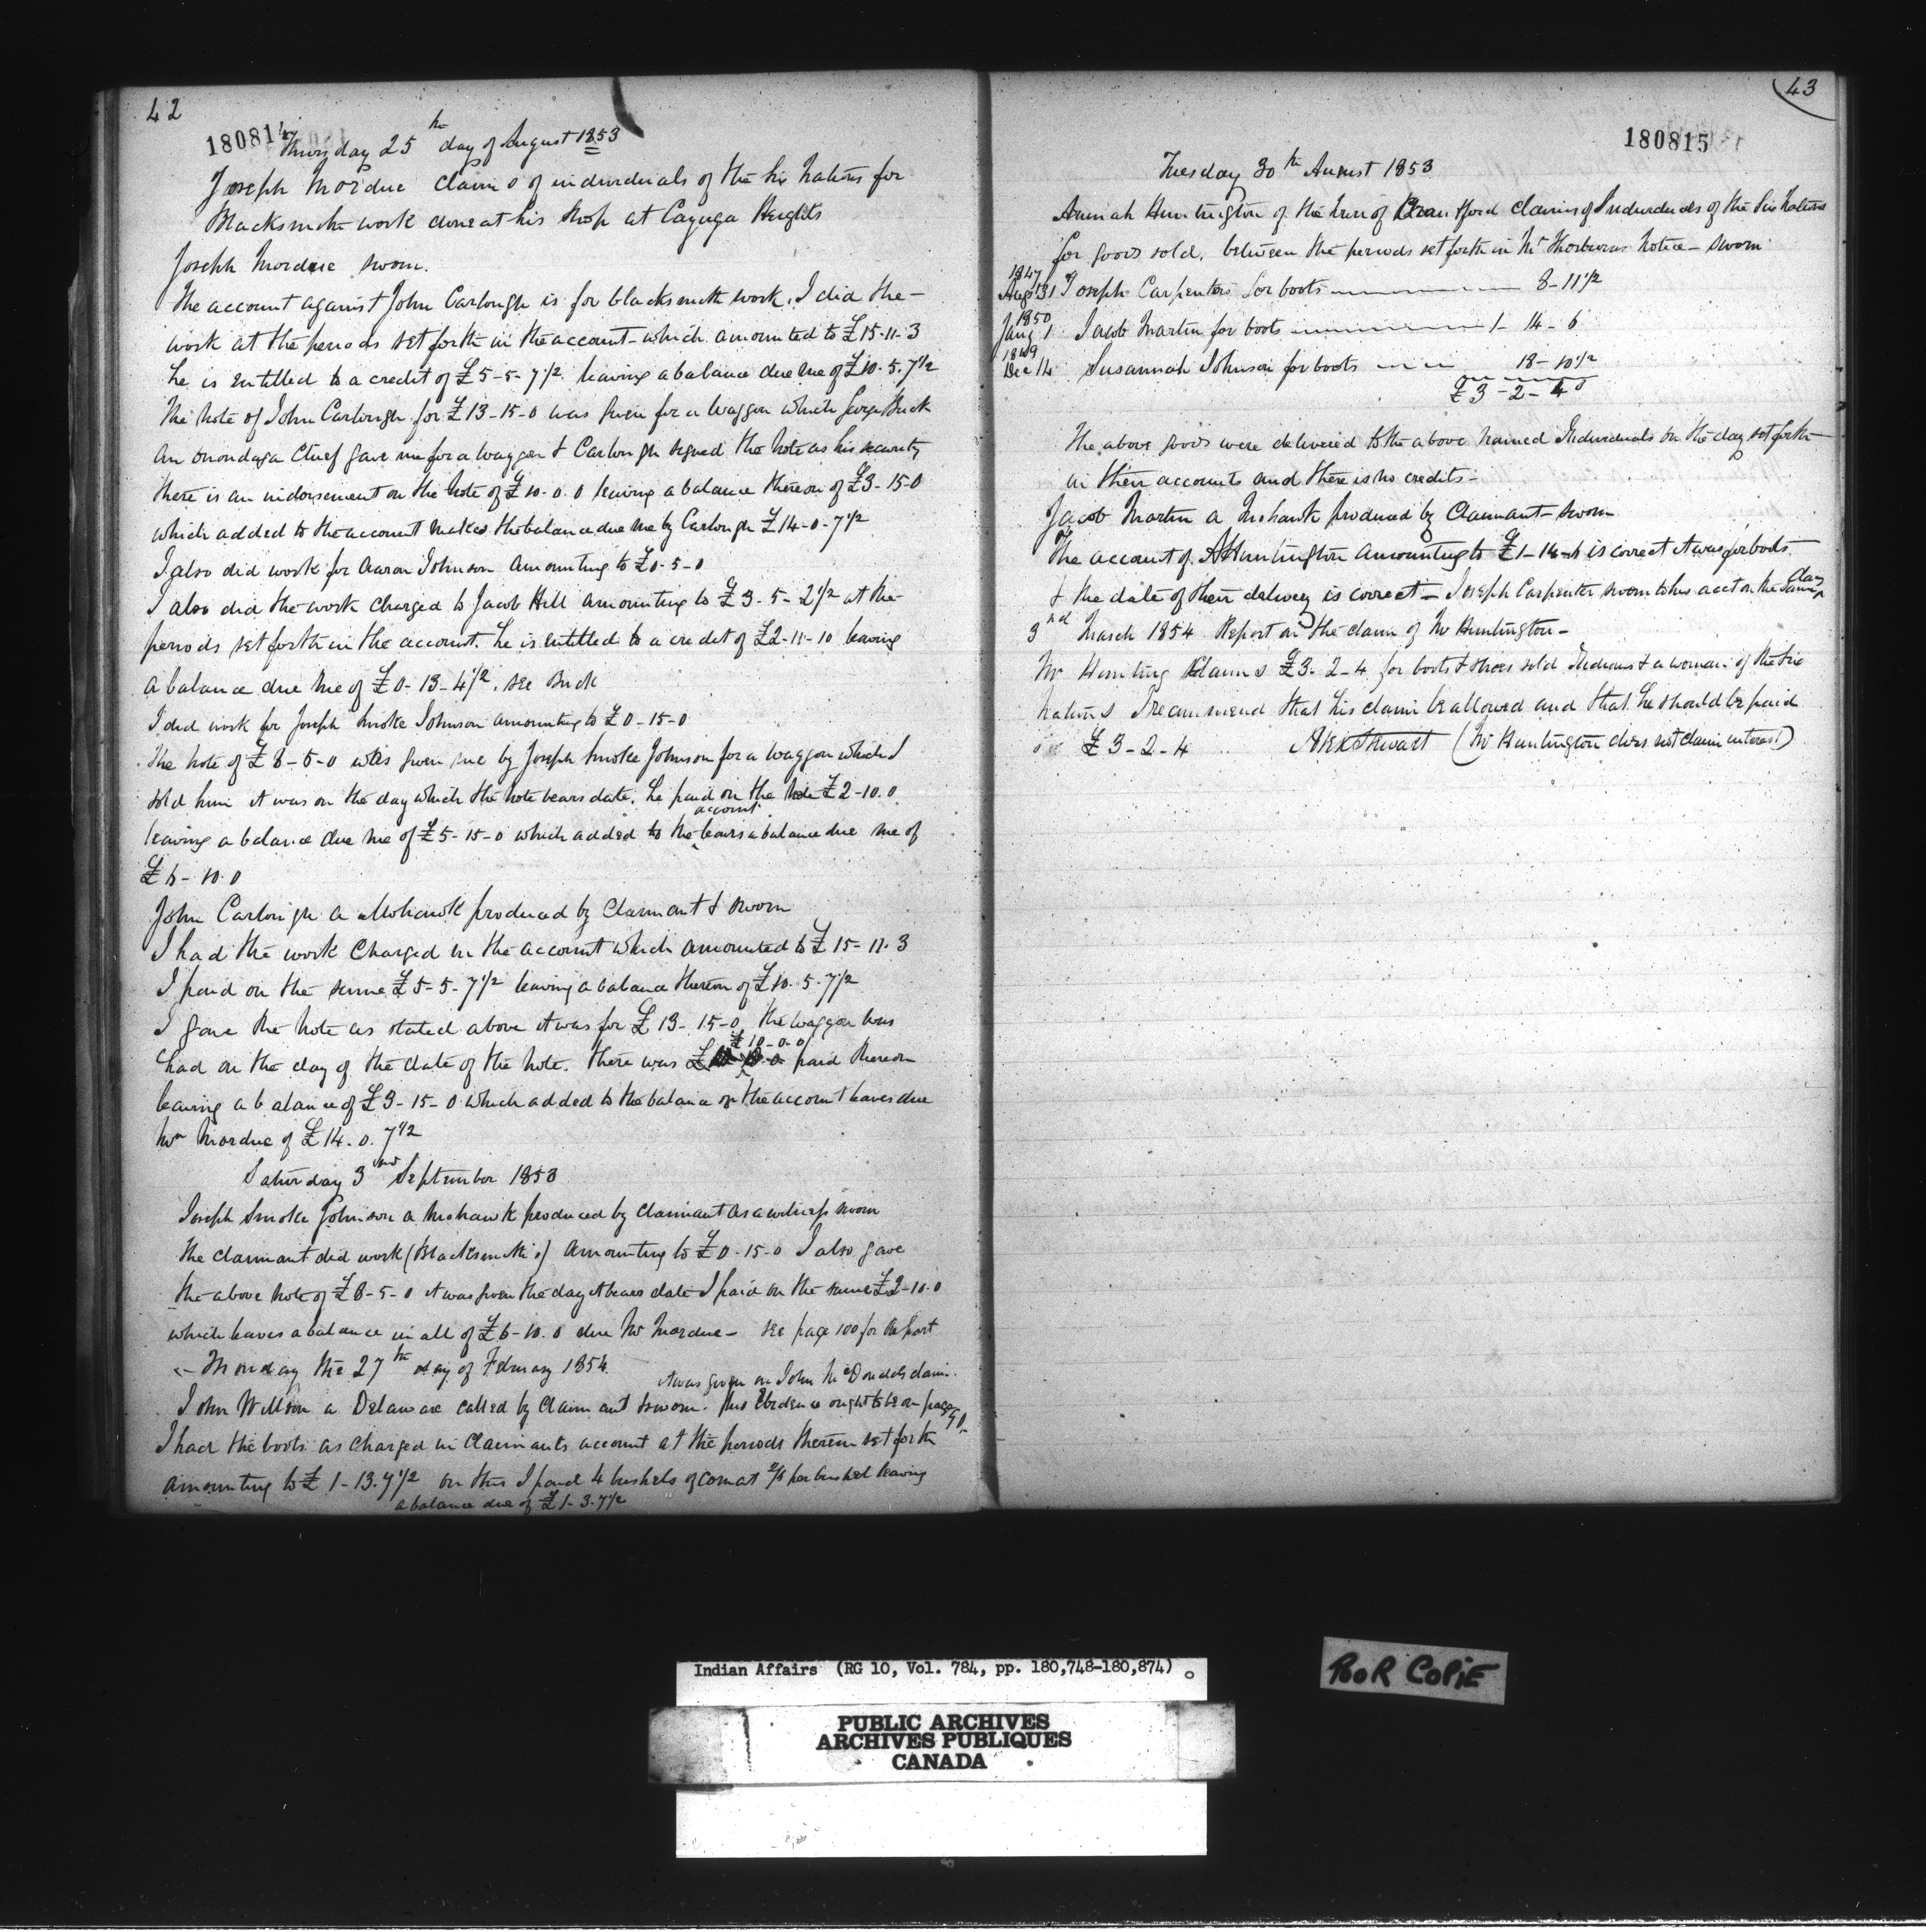 42
180814
Thursday 25th day of August 1853
Joseph Mordue claims of individuals of the Six Nations for
Blacksmith work done at his shop at Cayuga Heights
Joseph Mordue sworn.
The account against John Carlough is for blacksmith work. I did the
work at the periods set forth in the account which amounted to £15-11-3
he is entitled to a credit of £5-5-7½ leaving a balance due me of £10.5.7½
The Note of John Carlough for £13-15-0 was given for a Waggon which George Buck
an Onondaga Chief gave me for a waggon & Carlough signed the Note as his security
there is an indorsement on the Note of £10.0.0 leaving a balance thereon of £3-15-0
which added to the account makes the balance due me by Carlough £14-0-7½
I also did work for Aaron Johnson amounting to £0-5-0
I also did the work charged to Jacob Hill amounting to £3-5-2½ at the
periods set forth in the account. he is entitled to a credit of £2-11-10 leaving
a balance due me of £0-13-4½. see Buck
I did work for Joseph Smoke Johnson amounting to £0-15-0
The note of £8-5-0 was given me by Joseph Smoke Johnson for a waggon which I
sold him it was on the day which the note bears date. he paid on the Note £2-10.0
leaving a balance due me of £5-15-0 which added to the account leaves a balance due me of
£6-10.0
John Carlough a Mohawk produced by Claimant & sworn
I had the work Charged in the account which amounted to £15-11.3
I paid on the same £5-5-7½ leaving a balance thereon of £10.5.7½
I gave the Note as stated above it was for £13-15-0 the waggon was
had on the day of the date of the note. there was £10-0-0 paid thereon
leaving a balance of £3-15-0 which added to the balance on the account leaves due
Mr Mordue of £14.0.7½
Saturday 3rd September 1853
Joseph Smoke Johnson a Mohawk produced by claimant as a witness sworn
The claimant did work (Blacksmith's) amounting to £0-15-0 I also gave
the above note of £8-5-0 it was given the day it bears date I paid on the same £2-10.0
which leaves a balance in all of £6-10.0 due Mr Mordue - see page 100 for Report
Monday the 27th day of February 1854 it was given on John McDonalds claim.
John Willson a Delaware called by Claimant & sworn. this Evidence ought to be on page 90
I had the boots as charged in Claimants account at the periods therein set forth
amounting to £1-13.7½ on this I paid 4 bushels of corn at 2/6 per bushel leaving
a balance due of £1-3.7½
43
180815
Tuesday 30th August 1853
Huntington of the Town of Brantford claims of Individuals of the Six Nations
for goods sold, between the periods set forth in Mr Thorburns Notice - sworn
1847
Augt 31 Joseph Carpenter for boots 8-11½
1850
Jany 1 Jacob Martin for boots 1-14-6
1849
Dec 14 Susannah Johnson for boots 18-10½
£3-2-4
The above goods were delivered to the above named Individuals on the day set forth
in their accounts and there is no credits -
Jacob Martin a Mohawk produced by Claimant - sworn
The account of A Huntington amounting to £1-14-6 is correct it was for boots
& the date of their delivery is correct - Joseph Carpenter sworn to his acct on the same day
3rd March 1854 Report on the claim of Mr Huntington -
Mr Hunting Claims £3-2-4 for boots & shoes sold Indians & a woman of the Six
Nations I recommend that his claim be allowed and that he should be paid
£3-2-4 Alex Stewart (Mr Huntington does not claim interest)
Indian Affairs (RG 10, Vol. 784, pp. 180,748-180,874)
PUBLIC ARCHIVES
ARCHIVES PUBLIQUES
CANADA
POOR COPIE